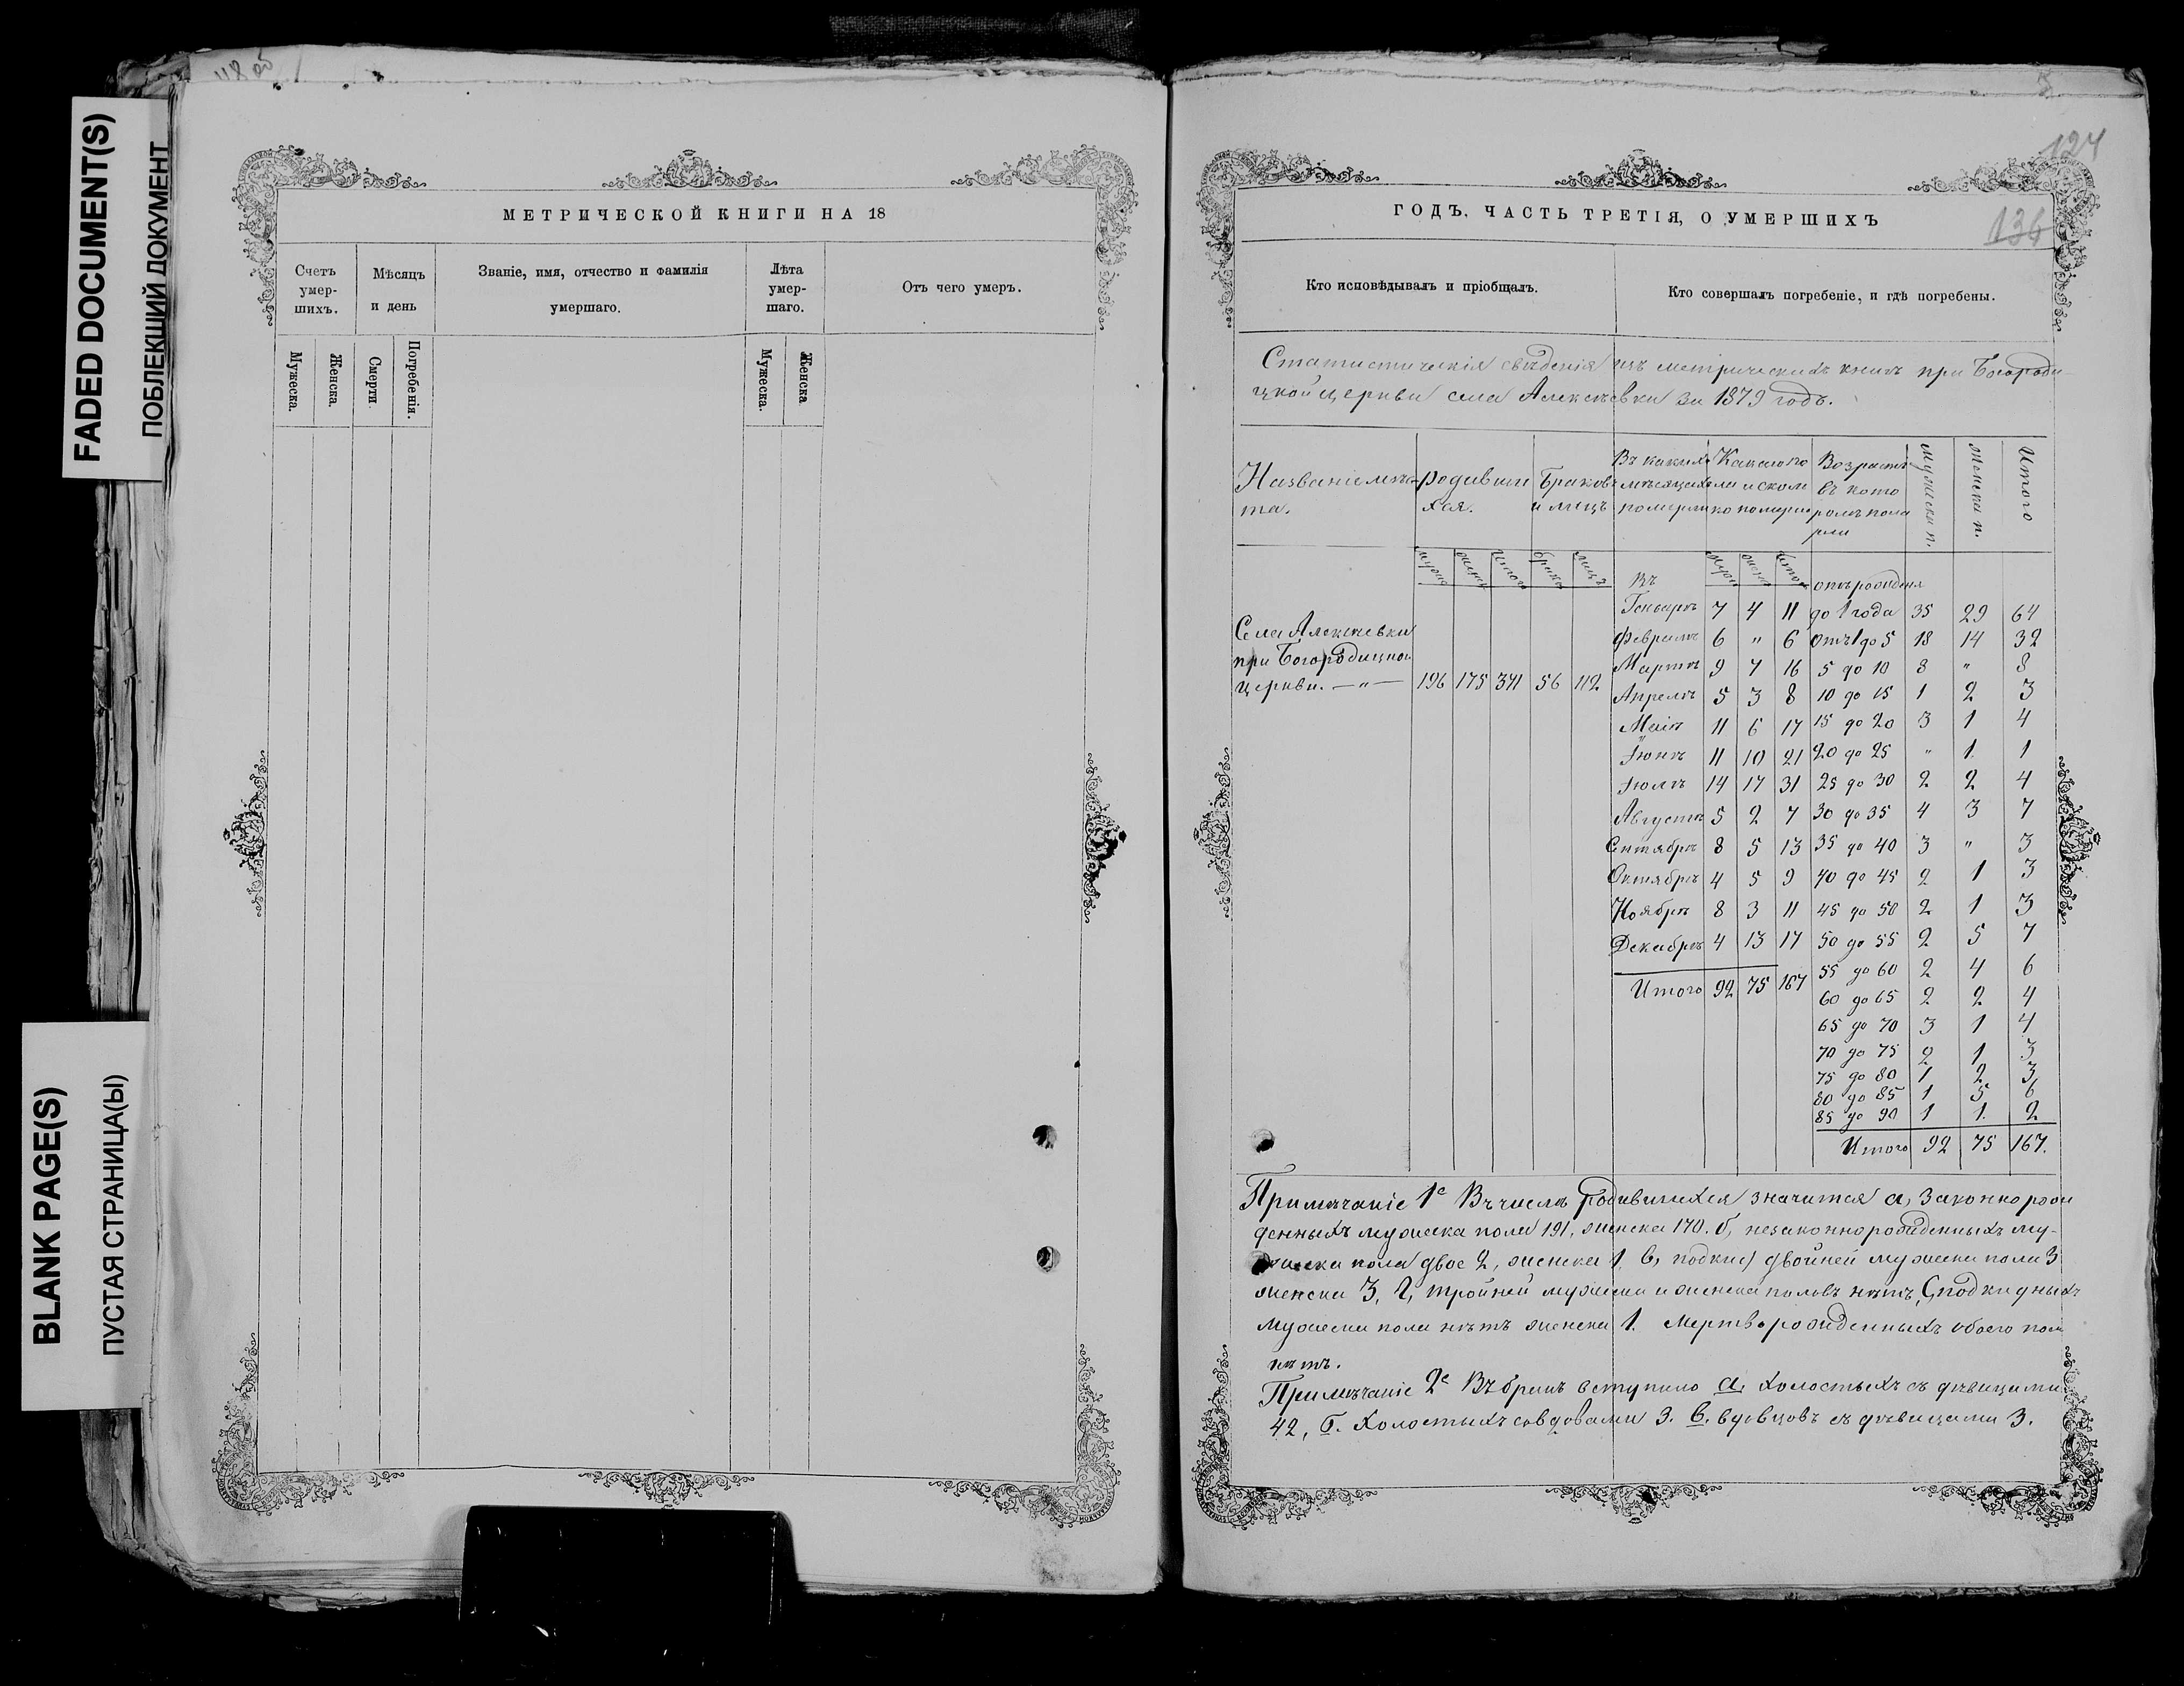 FADED DOCUMENT(S)
ПОБЛЕКШИЙ ДОКУМЕНТ
BLANK PAGE(S)
ПУСТАЯ СТРАНИЦА(Ы)
МЕТРИЧЕСКОЙ КНИГИ НА 18
Счетъ умер-шихъ.
Мѣсяцъ и день
Званіе, имя, отчество и фамилія умершаго.
Лѣта умер-шаго.
Отъ чего умеръ.
Мужеска. Женска. Смерти. Погребенія. Мужеска. Женска
124
136
ГОДЪ, ЧАСТЬ ТРЕТІЯ, О УМЕРШИХЪ
Кто исповѣдывалъ и пріобщалъ.
Кто совершалъ погребеніе, и гдѣ погребены.
Статистическія свѣденія изъ метрическихъ книгъ при Богороди-
цкой церкви села Алексѣевки за 1879 годъ.
Названіе мѣс-
та.
родивши
хся.
Браковъ
и лицъ
Въ какихъ
мѣсяцахъ
померли
Какого по
ла и скол
ко померло
Возрастъ
въ кото
ромъ поме
рли
Мужеска п.
Женска п.
Итого
Села Алексѣевки
при Богородицкой
церкви. — " — 196 175 371 56 112
Въ
Генварѣ 7 4 11
Февралѣ 6 " 6
Мартѣ 9 7 16
Апрелѣ 5 3 8
Маіѣ 11 6 17
Іюнѣ 11 10 21
Іюлѣ 14 17 31
Августѣ 5 2 7
Сентябрѣ 8 5 13
Октябрѣ 4 5 9
Ноябрѣ 8 3 11
Декабрѣ 4 13 17
Итого 92 75 167
отъ рожденія
до 1 года 35 29 64
Отъ 1 до 5 18 14 32
5 до 10 8 " 8
10 до 15 1 2 3
15 до 20 3 1 4
20 до 25 " 1 1
25 до 30 2 2 4
30 до 35 4 3 7
35 до 40 3 " 3
40 до 45 2 1 3
45 до 50 2 1 3
50 до 55 2 5 7
55 до 60 2 4 6
60 до 65 2 2 4
65 до 70 3 1 4
70 до 75 2 1 3
75 до 80 1 2 3
80 до 85 1 5 6
85 до 90 1 1. 2
Итого 92 75 167.
Примѣчаніе 1е Въ числѣ родившихся значится а, законнорож
денныхъ мужеска пола 191, женска 170. б, незаконнорожденныхъ му-
жеска пола двое 2, женска 1. в, двойней мужеска пола 3
женска 3, г, тройней мужеска и женска половъ нѣтъ, подкидныхъ
мужеска пола нѣтъ женска 1. Мертворожденныхъ обоего пола
нѣтъ.
Примѣчаніе 2е Въ бракъ вступило а, холостыхъ съ дѣвицами
42, б. холостыхъ со вдовами 3. в. вдовцовъ съ дѣвицами 3.